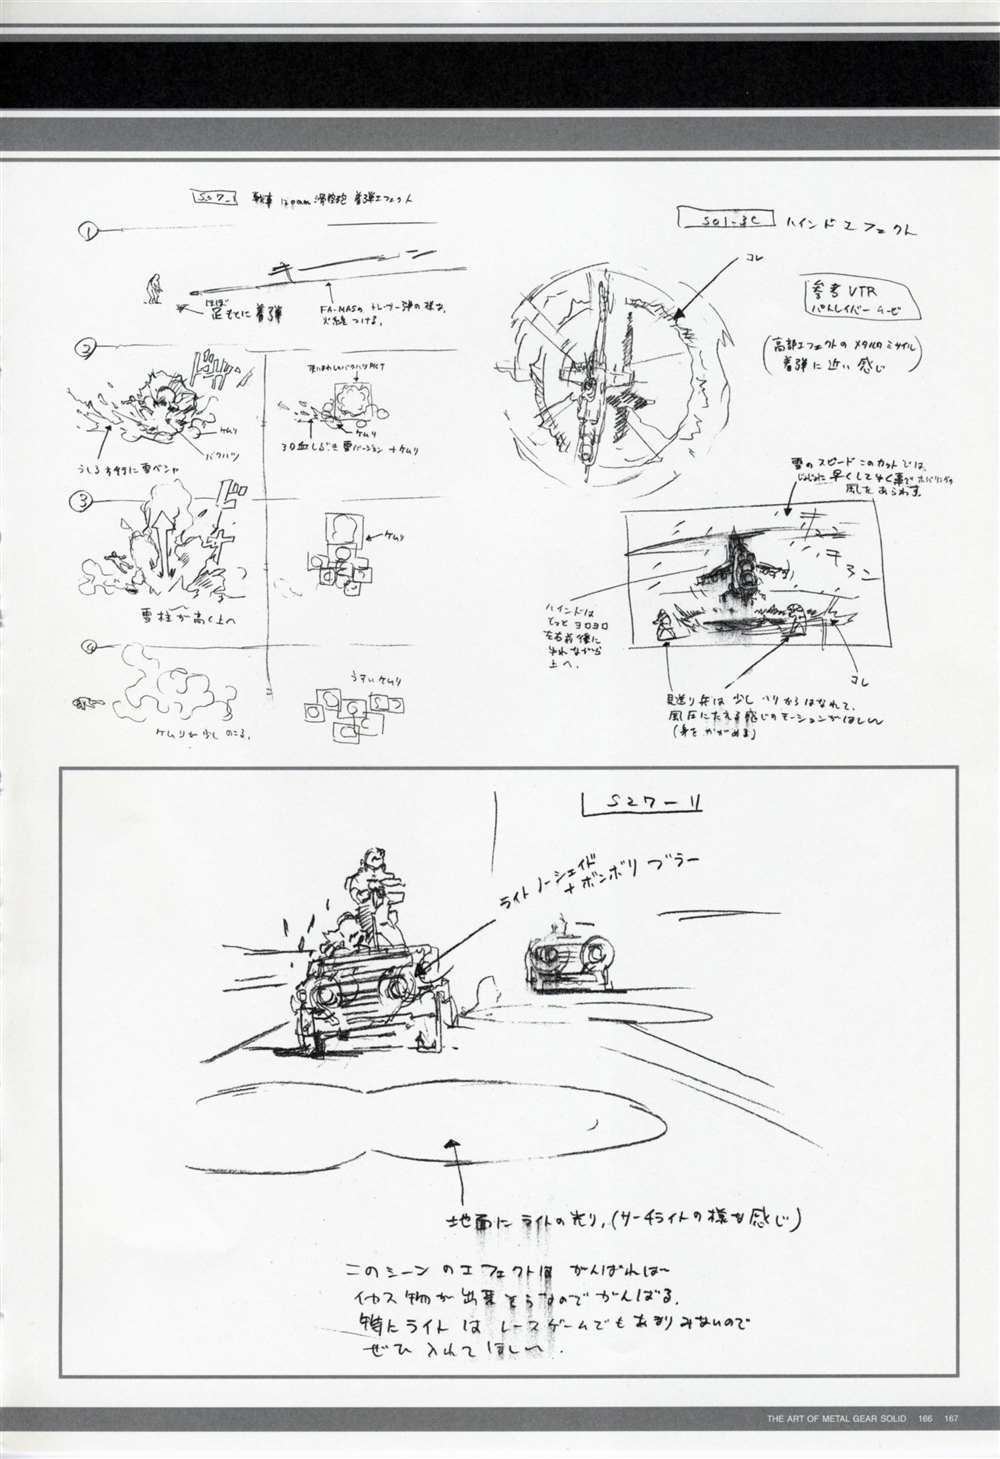 S27-1 戦車 120mm 滑腔砲 着弾エフェクト
①
ほぼ
足もとに着弾
FA-MASの トレーサー弾の様な
火線 つける。
②
ドババッ
ケムリ
バクハツ
うしろ方向に雪ベシャ
バクハツPICT
ケムリ
3D血しぶき 雪バージョン +ケムリ
③
雪柱が高く上へ
ケムリ
④
ケムリが少しのこる。
うすいケムリ
S01-3C ハインドエフェクト
コレ
参考 VTR
パトレイバー ムービー
(高部エフェクトの メタルα ミサイル
着弾に近い感じ)
雪のスピード このカットでは、
じょじょに早くして行く事で ホバリングの
風を あらわす。
キュン
ハインドは
もっと ヨロヨロ
左右前後に
ゆれながら
上へ。
コレ
見送り兵は 少し ヘリからはなれて、
風圧にたえる感じのモーションがほしい
(身を かがめる)
S27-11
ライト ノーシェイド
+ ボンボリ ブラー
地面に ライトの光り。(サーチライトの様な感じ)
このシーン のエフェクトは がんばれば〜
イカス物が出来そうなので がんばる。
特にライト は レースゲームでも あまりみないので
ぜひ 入れて ほしい.
THE ART OF METAL GEAR SOLID 166 167